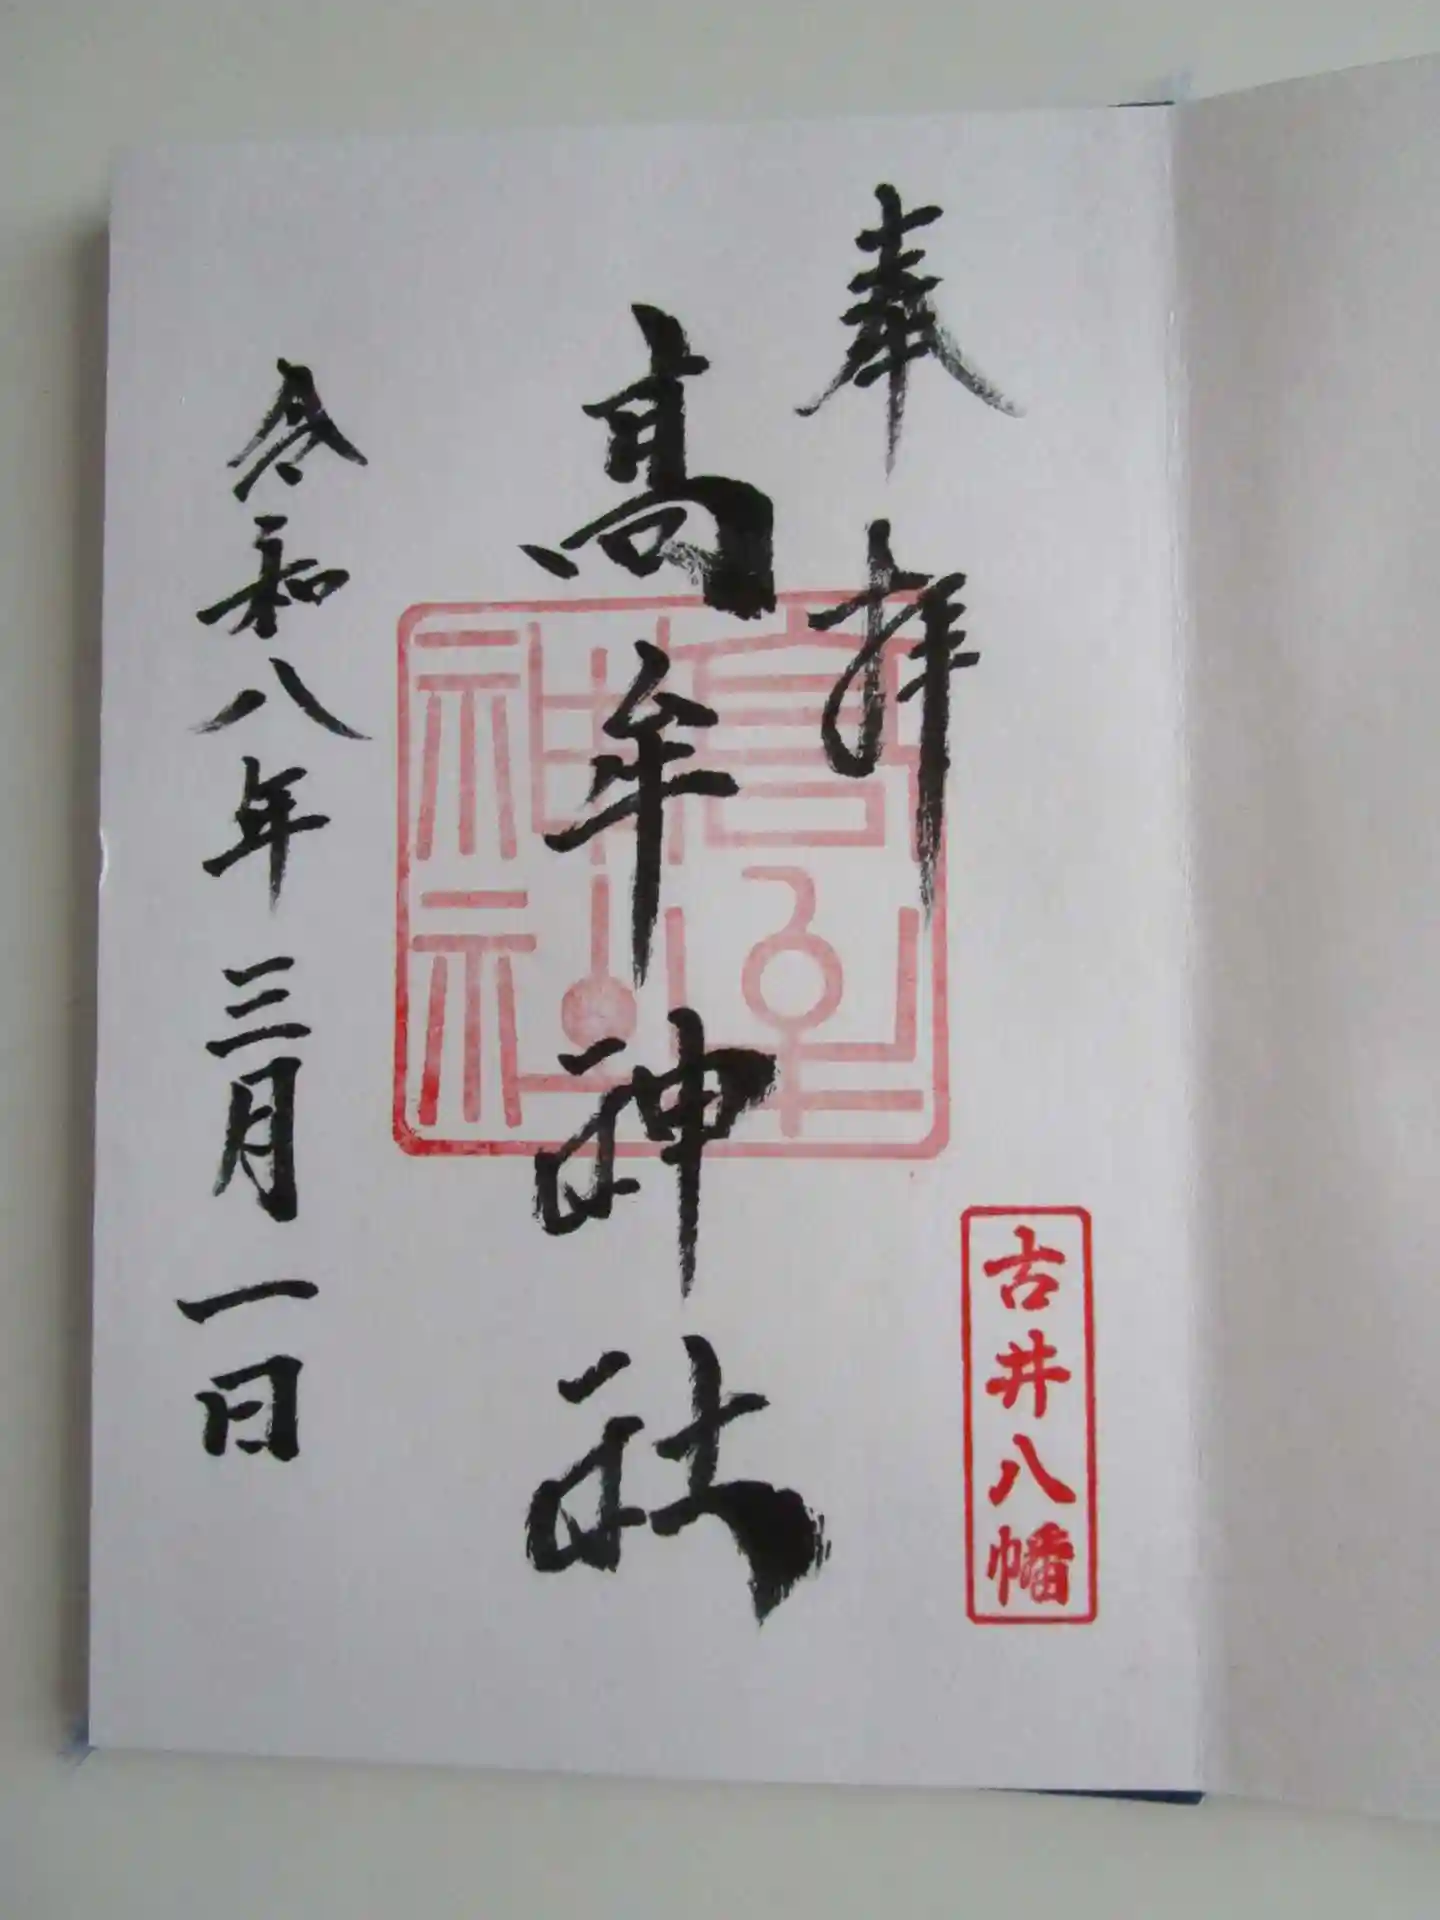 奉拝
古井八幡
高牟神社
高牟神社
令和八年三月一日